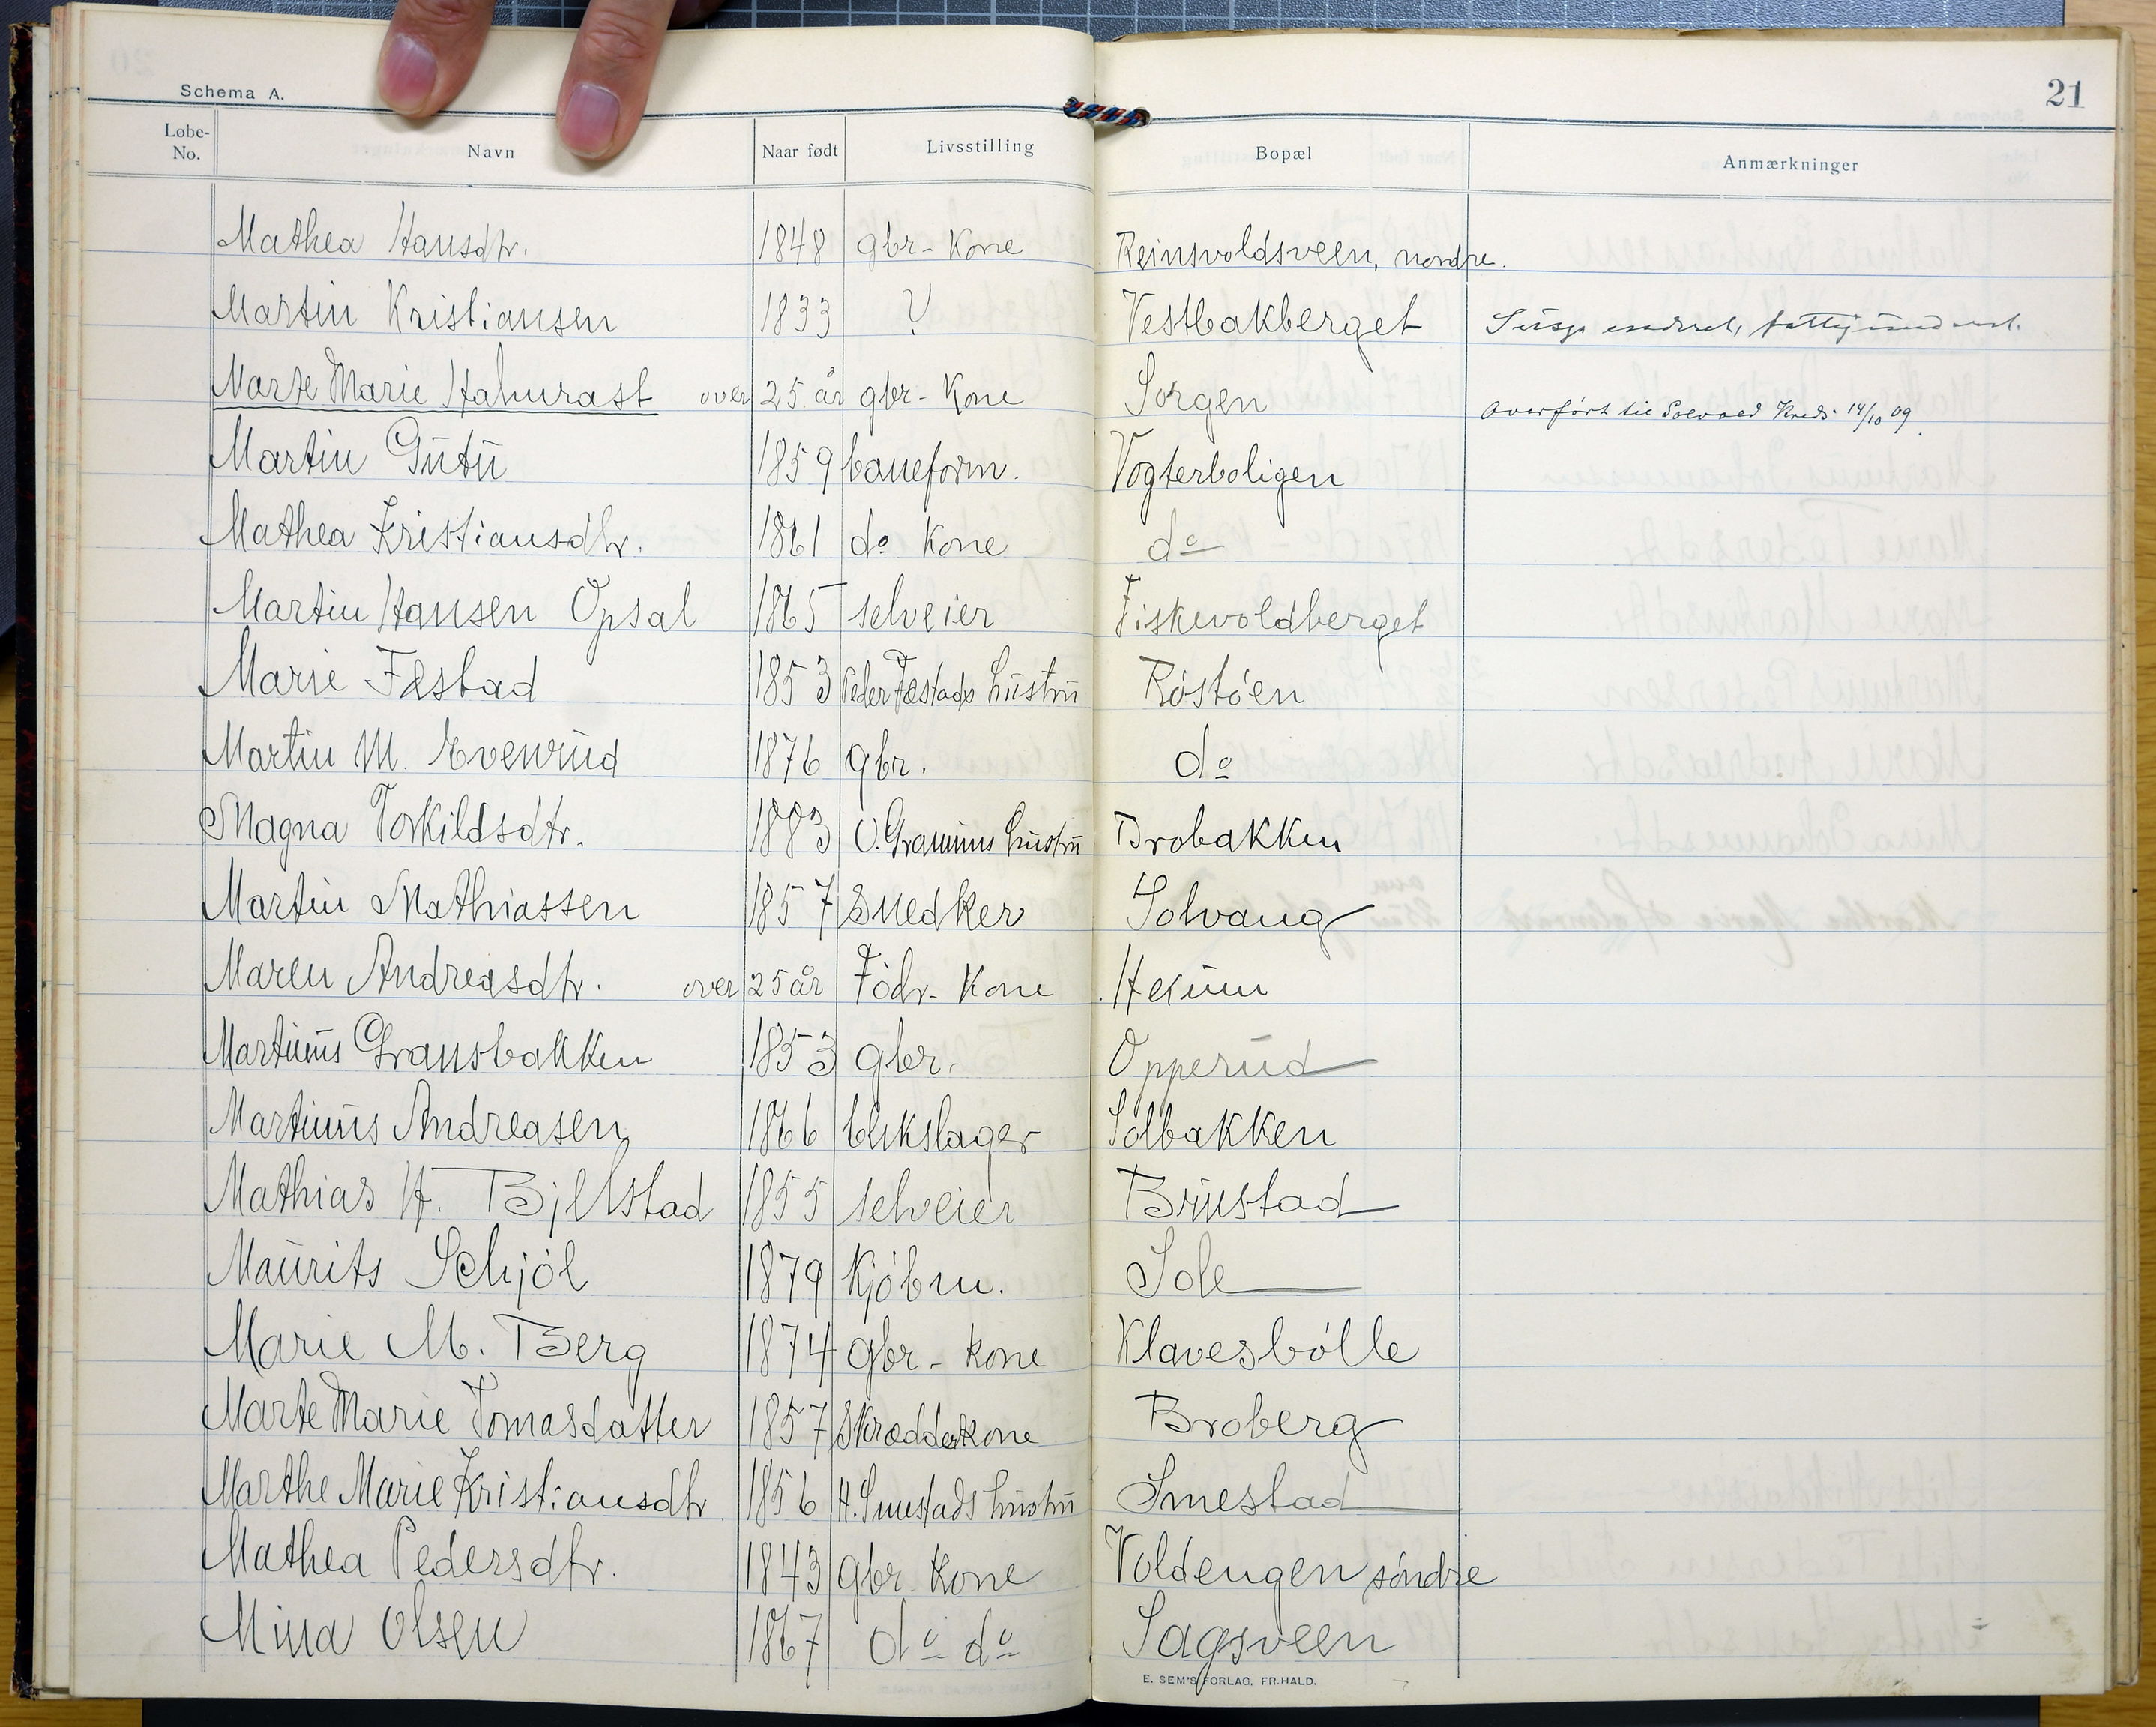 Schema A.
21
Løbe-No. Navn Naar født Livsstilling Bopæl Anmærkninger
Mathea Hansdtr. 1848 gbr-Kone Reinsvoldsveen, nordre.
Martin Kristiansen 1833 ? Vestbakberget
Marte Marie Halmrast over 25 år gbr-Kone Sorgen Overført til Solvold Kreds 14/10 09.
Martin Gutu 1859 baneform. Vogterboligen
Mathea Kristiansdtr. 1861 do Kone do
Martin Hansen Opsal 1865 selveier Fiskevoldberget
Marie Fæstad 1853 Peder Fæstads hustru Röstöen
Martin M. Evenrud 1876 gbr. do
Magna Torkildsdtr. 1883 O. Gramums hustru Brobakken
Martin Mathiassen 1857 Snedker Solvang
Maren Andreasdtr. over 25 år Födr-Kone Hexum
Martinus Gransbakken 1853 gbr. Opperud
Martinus Andreasen 1866 blikslager Solbakken
Mathias H. Bjellstad 1855 selveier Brustad
Maurits Schjöl 1879 Kjöbm. Sole
Marie M. Berg 1874 gbr-kone Klavesbölle
Marte Marie Tomasdatter 1857 Skrædderkone Broberg
Marthe Marie Kristiansdtr 1856 H. Smestads hustru Smestad
Mathea Pedersdtr. 1843 gbr. Kone Voldengen söndre
Mina Olsen 1867 do do Sagsveen
E. SEM'S FORLAG, FR.HALD.